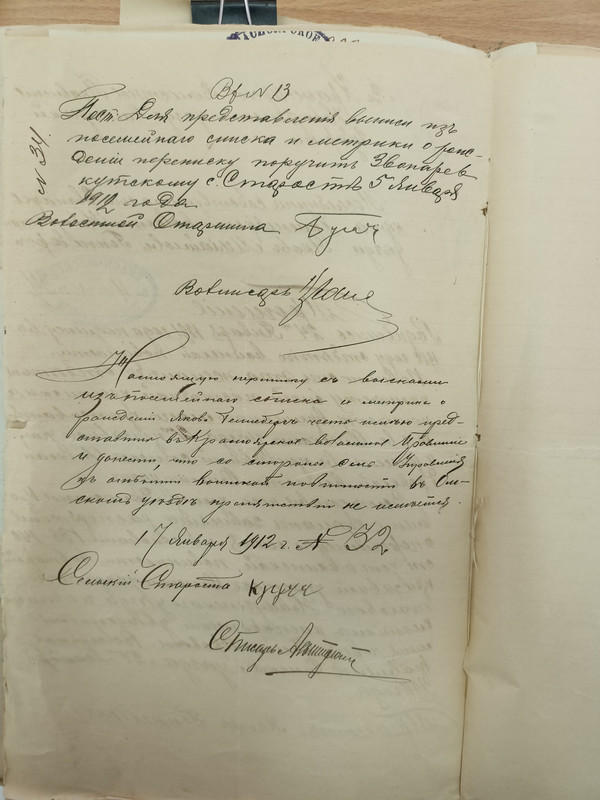 ВхN 13
N 34.
Пост. Для представленія выписи изъ
посемейнаго списка и метрики о рож-
деніи переписку поручить Звонарев
кутскому с. Старостѣ 5 Января
1912 года
Волостной Старшина
Волписарь
Настоящую переписку съ выписками
изъ посемейнаго списка и метрики о
рожденіи Якова честь имѣю пред-
ставить въ Красноярское волостное Правленіе
и донести, что со стороны Сел. Управленія
къ отбытію воинской повинности въ Ом-
скомъ уѣздѣ препятствій не имѣется.
17 Января 1912 г. N 32
Сельскій Староста
Писарь